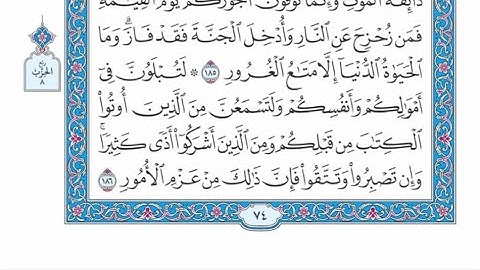 ذَآئِقَةُ ٱلۡمَوۡتِۗ وَإِنَّمَا تُوَفَّوۡنَ أُجُورَكُمۡ يَوۡمَ ٱلۡقِيَٰمَةِۖ
فَمَن زُحۡزِحَ عَنِ ٱلنَّارِ وَأُدۡخِلَ ٱلۡجَنَّةَ فَقَدۡ فَازَۗ وَمَا
ٱلۡحَيَوٰةُ ٱلدُّنۡيَآ إِلَّا مَتَٰعُ ٱلۡغُرُورِ ١٨٥ ۞ لَتُبۡلَوُنَّ فِيٓ
أَمۡوَٰلِكُمۡ وَأَنفُسِكُمۡ وَلَتَسۡمَعُنَّ مِنَ ٱلَّذِينَ أُوتُواْ
ٱلۡكِتَٰبَ مِن قَبۡلِكُمۡ وَمِنَ ٱلَّذِينَ أَشۡرَكُوٓاْ أَذٗى كَثِيرٗاۚ
وَإِن تَصۡبِرُواْ وَتَتَّقُواْ فَإِنَّ ذَٰلِكَ مِنۡ عَزۡمِ ٱلۡأُمُورِ ١٨٦
ربع
الحزب
٨
٧٤